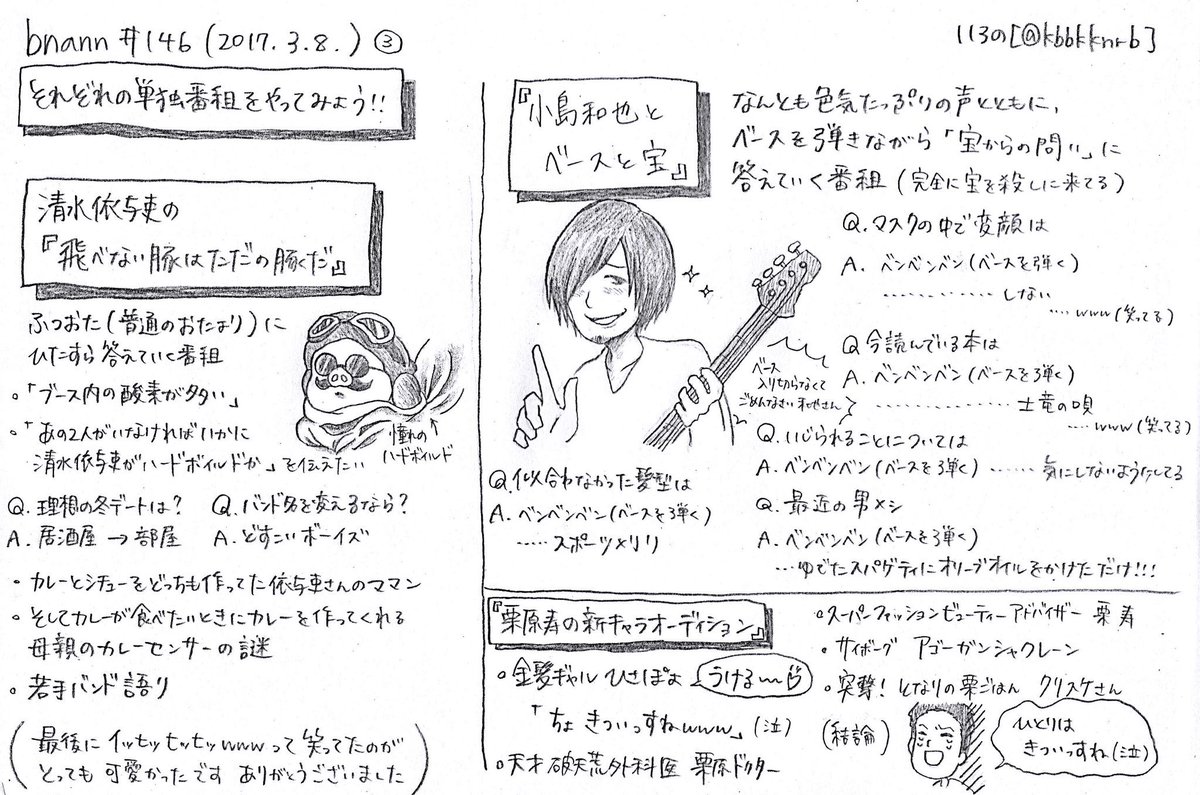 bnann #146 (2017.3.8.) ③
113の[@kbbkknrb]
それぞれの単独番組をやってみよう!!
清水依与吏の
『飛べない豚はただの豚だ』
ふつおた(普通のおたより)に
ひたすら答えていく番組
。「ブース内の酸素が多い」
。「あの2人がいなければいかに
清水依与吏がハードボイルドか」を伝えたい
憧れの
ハードボイルド
Q. 理想の冬デートは?
A. 居酒屋→部屋
Q. バンド名を変えるなら?
A. どすこいボーイズ
・カレーとシチューをどっちも作ってた依与吏さんのママン
・そしてカレーが食べたいときにカレーを作ってくれる
母親のカレーセンサーの謎
・若手バンド語り
(最後にイッヒッヒッヒッwwwって笑ってたのが
とっても可愛かったです ありがとうございました)
『小島和也と
ベースと宝』
なんとも色気たっぷりの声とともに、
ベースを弾きながら「宝からの問い」に
答えていく番組(完全に宝を殺しに来てる)
Q. マスクの中で変顔は
A. ベンベンベン(ベースを弾く)
…………… しない
…www(笑ってる)
Q 今読んでいる本は
A. ベンベンベン(ベースを弾く)
…………… 土竜の唄
…www(笑ってる)
ベース
入り切らなくて
ごめんなさい和也さん
Q. いじられることについては
A. ベンベンベン(ベースを弾く)……気にしないようにしてる
Q. 似合わなかった髪型は
A. ベンベンベン(ベースを弾く)
……スポーツメリリ
Q. 最近の男メシ
A. ベンベンベン(ベースを弾く)
…ゆでたスパゲティにオリーブオイルをかけただけ!!!
『栗原寿の新キャラオーディション』
。金髪ギャル ひさぽよ
うける〜〜
「ちょ きついっすねwww」(泣)
。天才破天荒外科医 栗原ドクター
。スーパーファッションビューティーアドバイザー 栗 寿
。サイボーグ アゴーガンシャクレーン
。突撃!となりの栗ごはん クリスケさん
(結論)
ひとりは
きついっすね(泣)